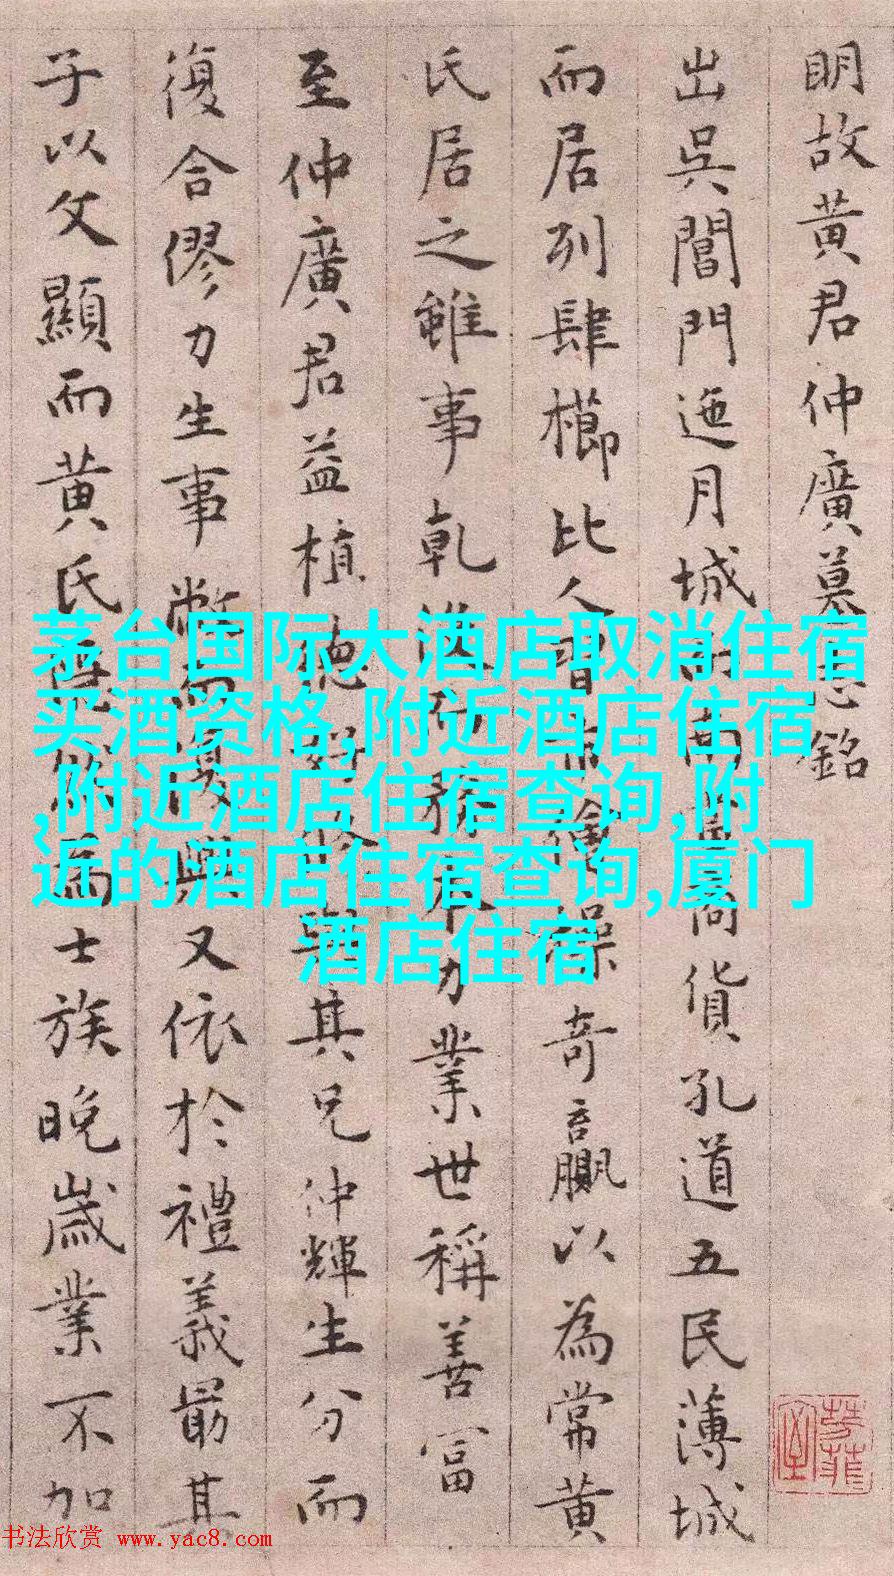 明故黄君仲廣墓志銘
出吳閶門迤月城而南為商貨孔道五民薄城
而居列肆櫛比人習市儈操奇贏以為常黄
氏居之雖事乾没而務本力業世稱善富
至仲廣君益植德好脩與其兄仲輝生分而
復合僇力生事幣而復興又依於禮義最其
子以文顯而黄氏為士族晚歲業不加
茅台国际大酒店取消住宿
买酒资格,附近酒店住宿
,附近酒店住宿查询,附
近的酒店住宿查询,厦门
酒店住宿
书法欣赏 www.yac8.com